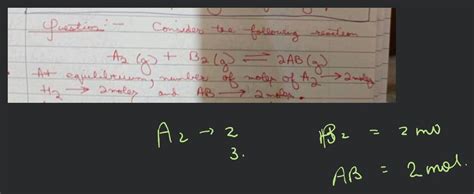 Question :- Consider the following reaction
A2 (g) + B2 (g) ⇌ 2AB (g)
At equilibrium, number of moles of A2 → 2 moles
H2 → 2 moles and AB → 2 moles.
A2 → 2
3.
B2 = 2 mo
AB = 2 mol.